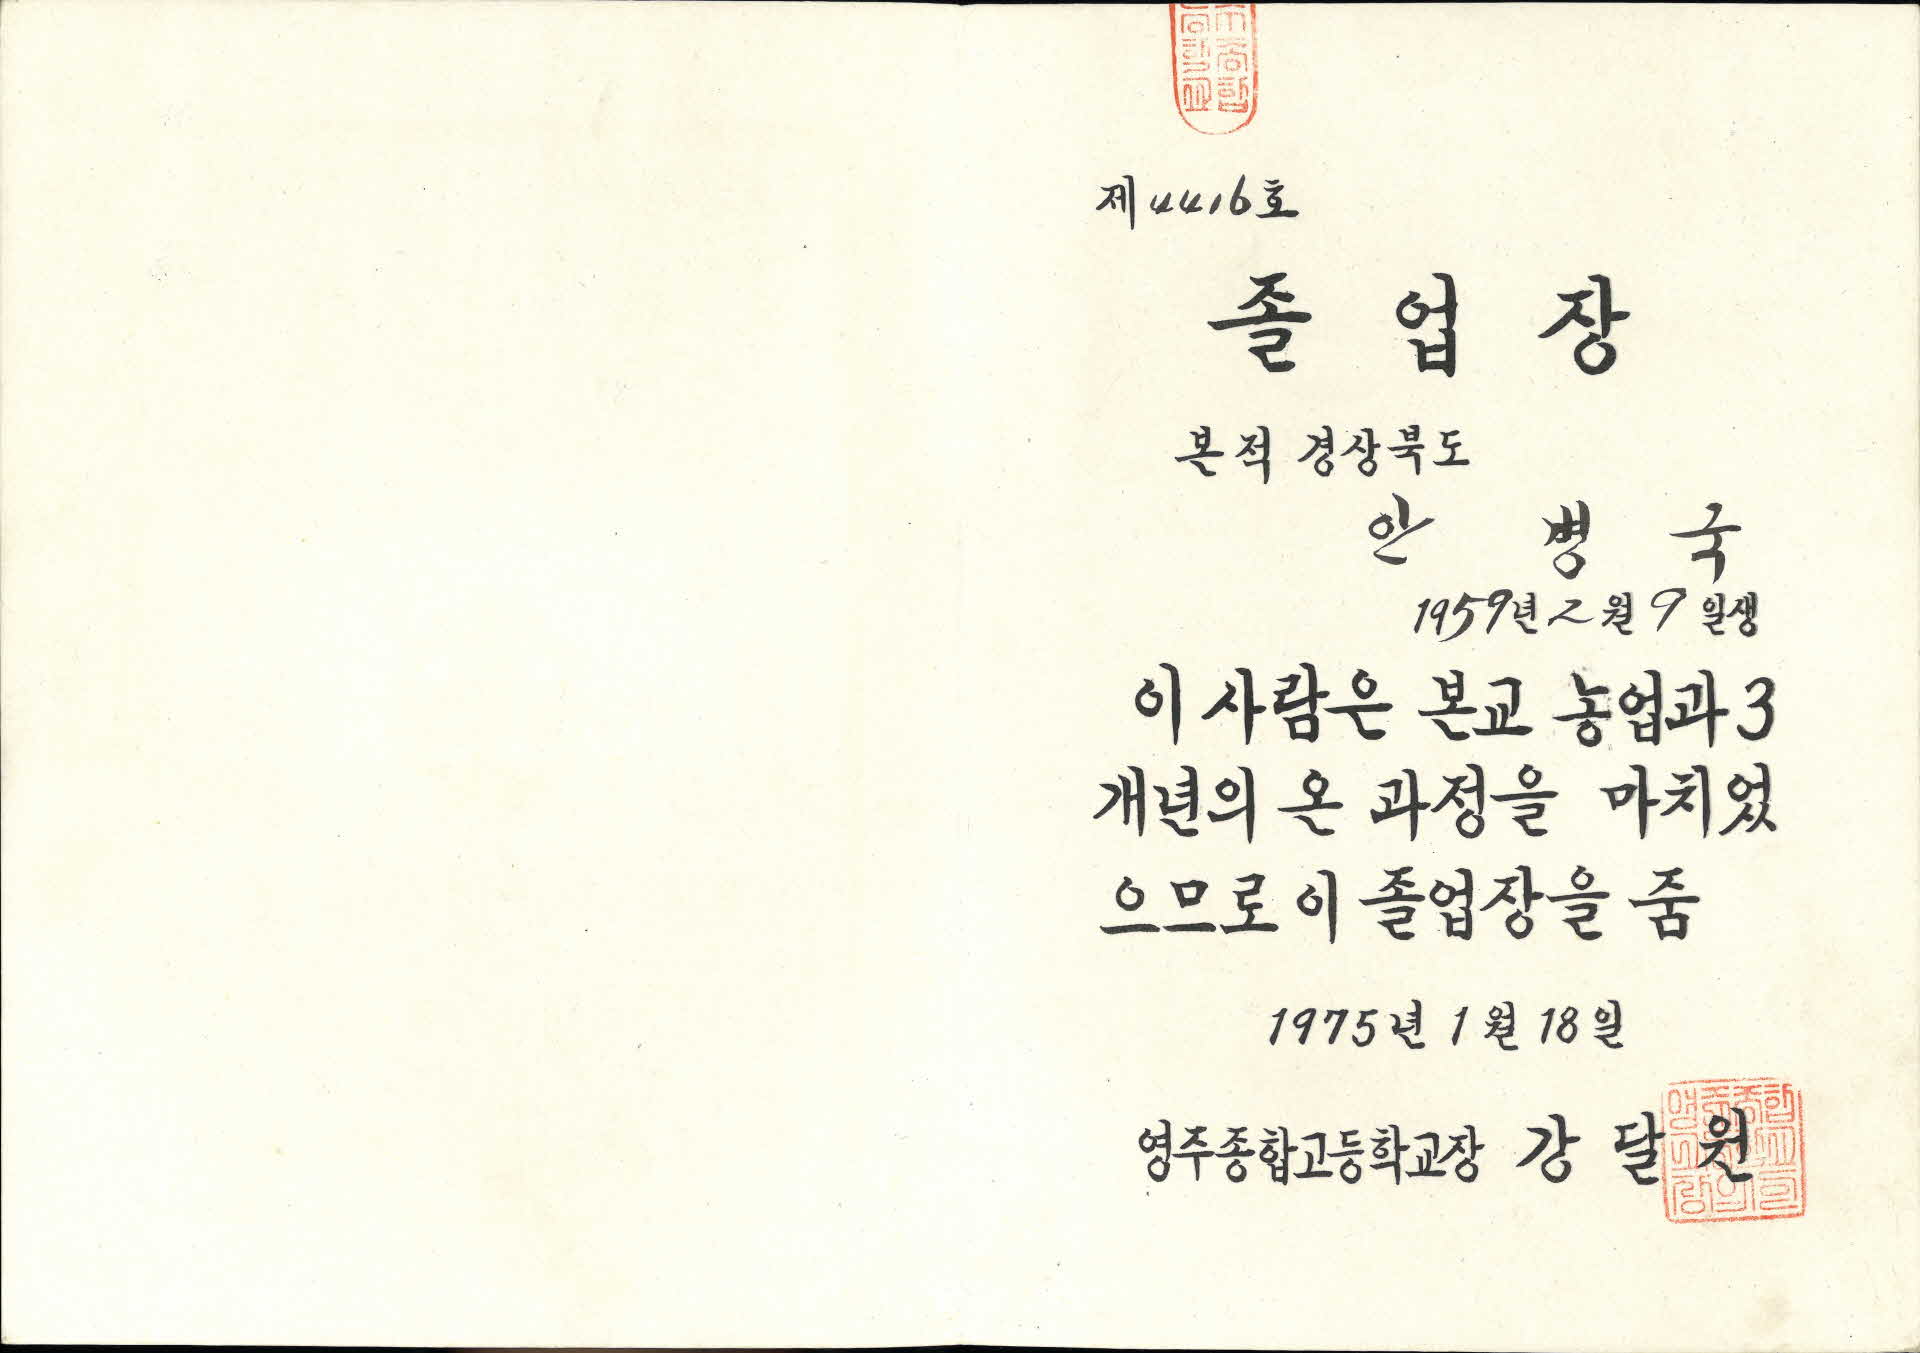 제4416호
졸업장
본적 경상북도
안병국
1959년 2월 9일생
이 사람은 본교 농업과 3
개년의 온 과정을 마치었
으므로 이 졸업장을 줌
1975년 1월 18일
영주종합고등학교장 강달원